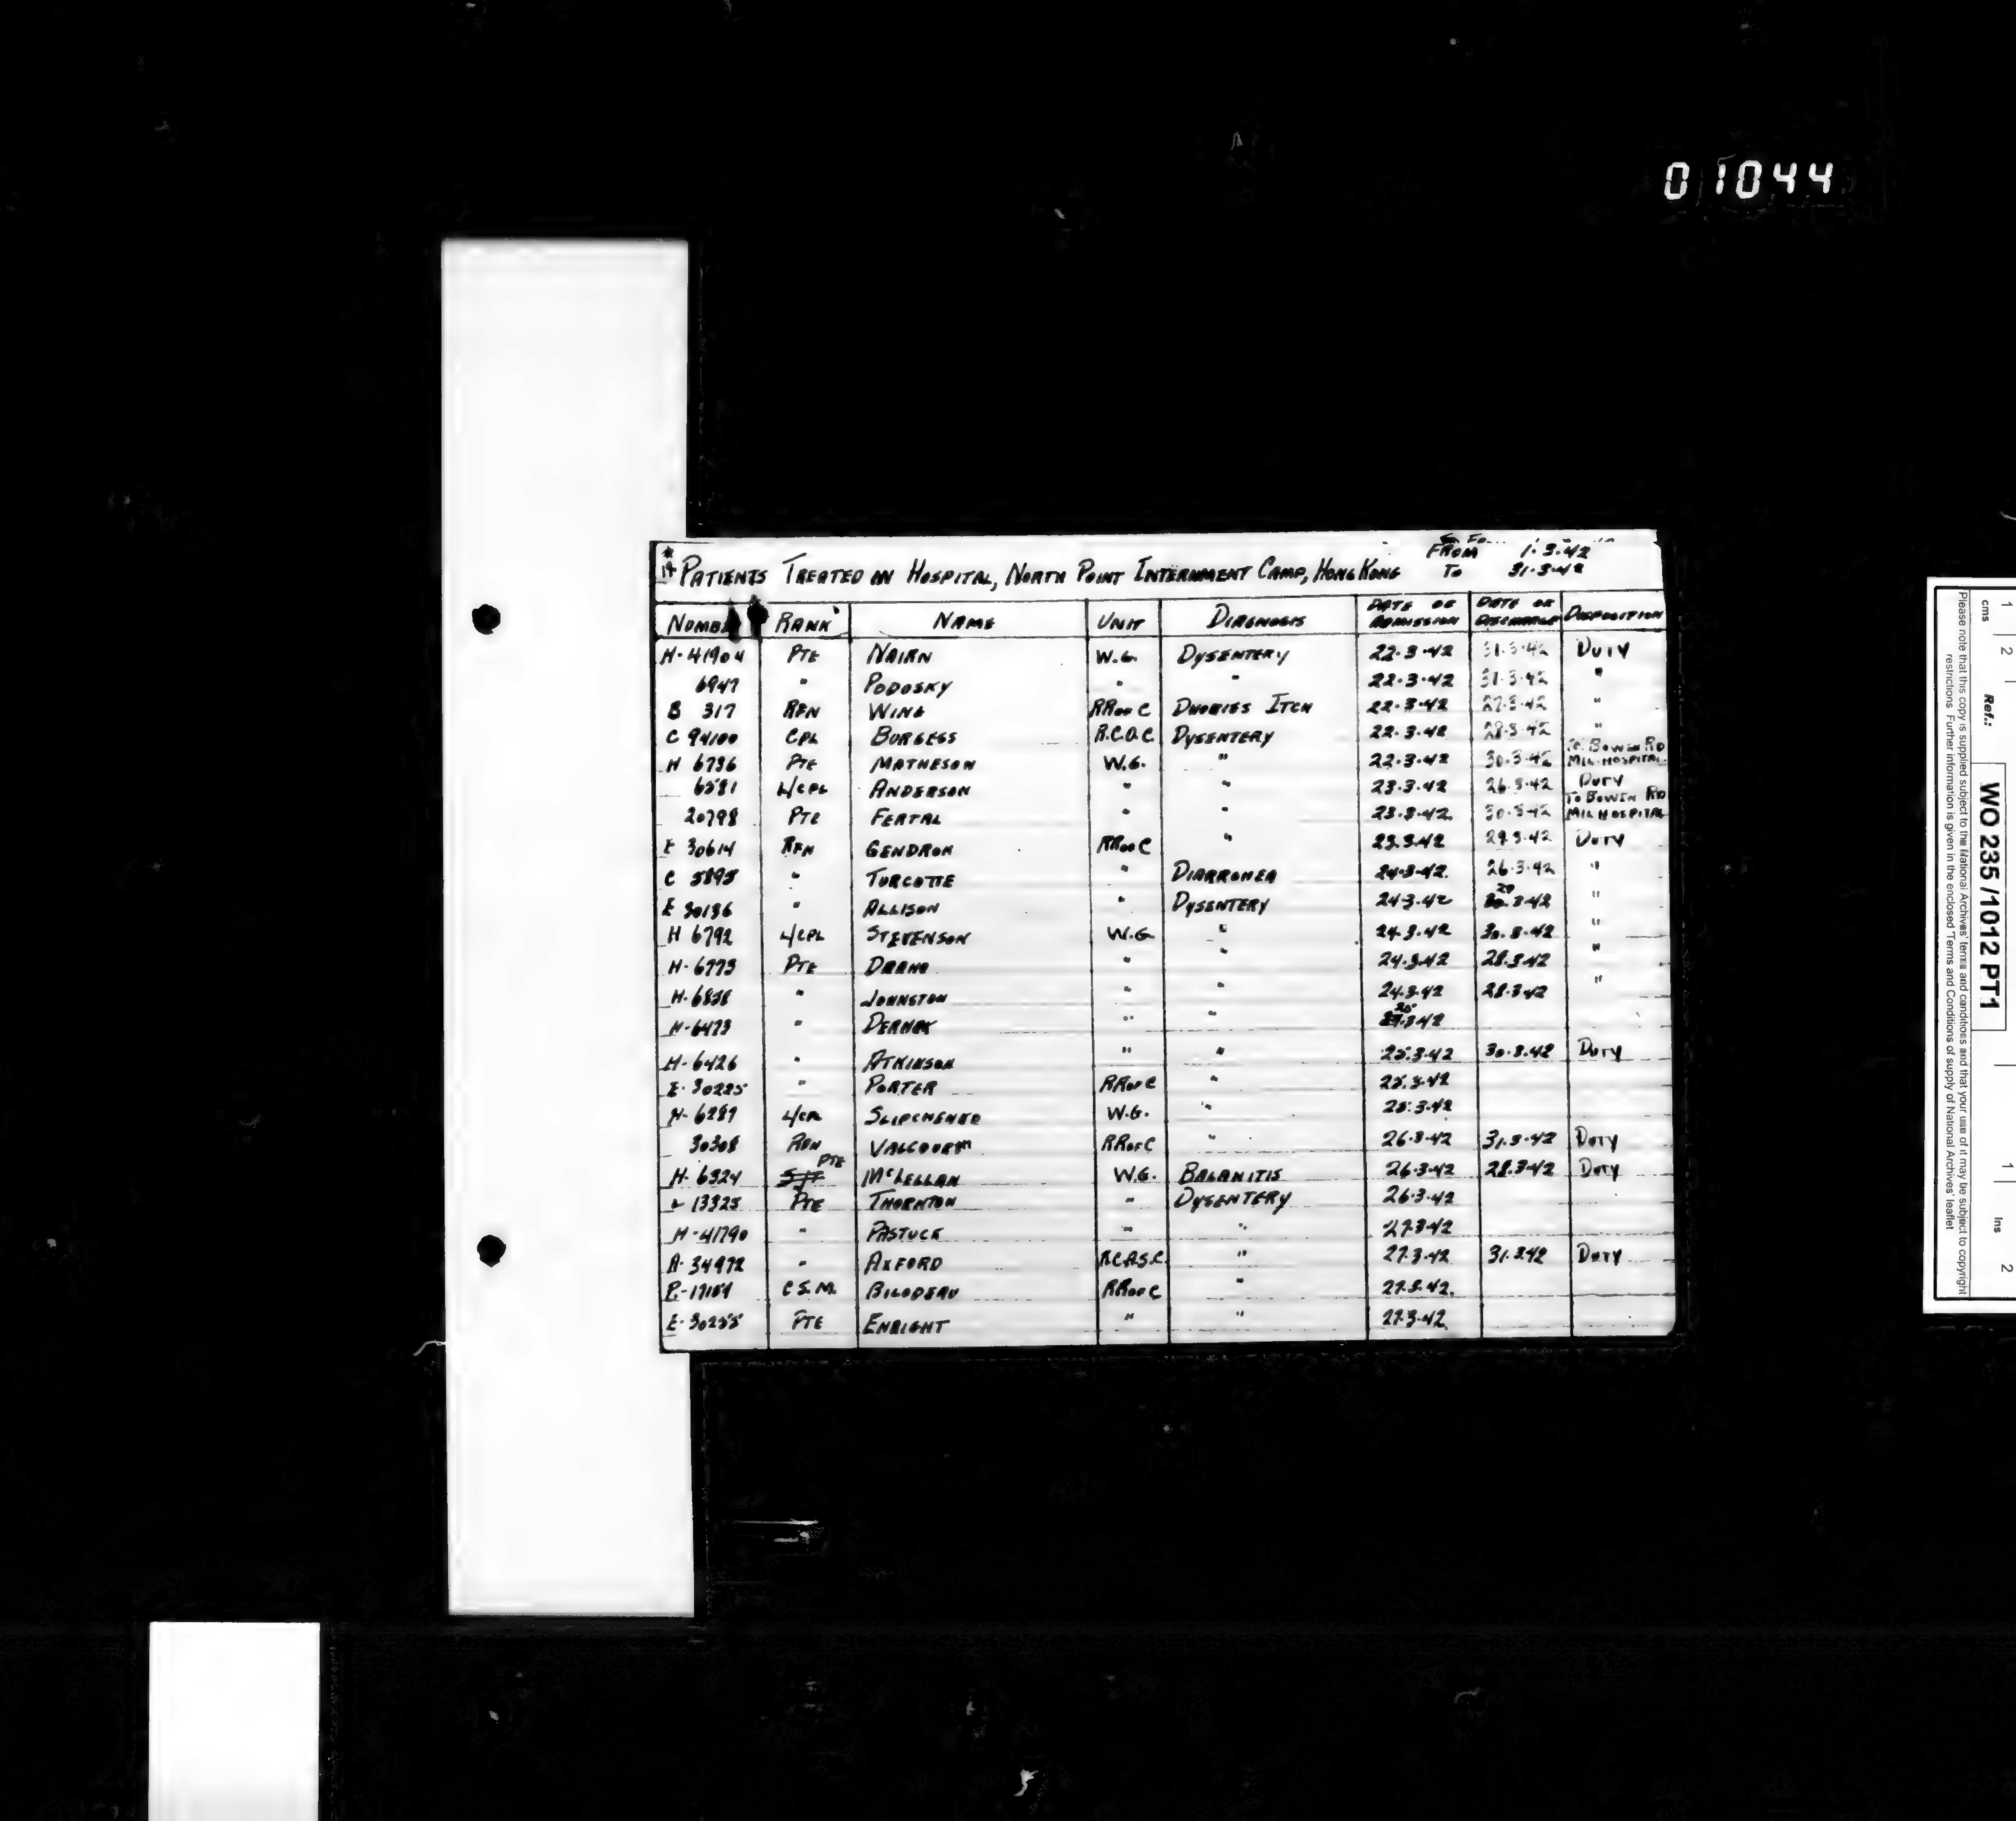 01044
FROM 1.3.42
PATIENTS TREATED IN HOSPITAL, NORTH POINT INTERNMENT CAMP, HONG KONG TO 31.3.42
NUMBER RANK NAME UNIT DIAGNOSIS DATE OF ADMISSION DATE OF DISCHARGE DISPOSITION
H-41904 PTE NAIRN W.G. DYSENTERY 22.3.42 31.3.42 DUTY
6947 " PODOSKY " " 22.3.42 31.3.42 "
B 317 RFN WING RR OF C DHOBIES ITCH 22.3.42 27.3.42 "
C 94100 CPL BURGESS R.C.O.C. DYSENTERY 22.3.42 28.3.42 "
H 6736 PTE MATHESON W.G. " 22.3.42 30.3.42 TO BOWEN RD MIL. HOSPITAL
6581 L/CPL ANDERSON " " 23.3.42 26.3.42 DUTY
20798 PTE FERTAL " " 23.3.42 30.3.42 TO BOWEN RD MIL HOSPITAL
E 30614 RFN GENDRON RR OF C " 23.3.42 29.3.42 DUTY
C 5895 " TURCOTTE " DIARROHEA 24.3.42 26.3.42 "
E 30136 " ALLISON " DYSENTERY 24.3.42 29.3.42 "
H 6792 L/CPL STEVENSON W.G. " 24.3.42 30.3.42 "
H-6773 PTE " " 24.3.42 28.3.42 "
H-6838 " JOHNSTON " " 24.3.42 28.3.42 "
H-6473 " " " 25.3.42
H-6426 " ATKINSON " " 25.3.42 30.3.42 DUTY
E-30225 " PORTER RR OF C " 25.3.42
H-6287 L/CPL W.G. " 25.3.42
30308 RFN VALCOURT RR OF C " 26.3.42 31.3.42 DUTY
H-6324 PTE McLELLAN W.G. BALANITIS 26.3.42 28.3.42 DUTY
L 13325 PTE THORNTON " DYSENTERY 26.3.42
H-41790 " PASTUCK " " 27.3.42
A-34972 " AXFORD R.C.A.S.C. " 27.3.42 31.3.42 DUTY
C.S.M. BILODEAU RR OF C " 27.3.42
E-30255 PTE ENRIGHT " " 27.3.42
1 2
cms
Ref.:
WO 235 /1012 PT1
1 2
Ins
Please note that this copy is supplied subject to the National Archives' terms and conditions and that your use of it may be subject to copyright
restrictions. Further information is given in the enclosed 'Terms and Conditions of supply of National Archives' leaflet